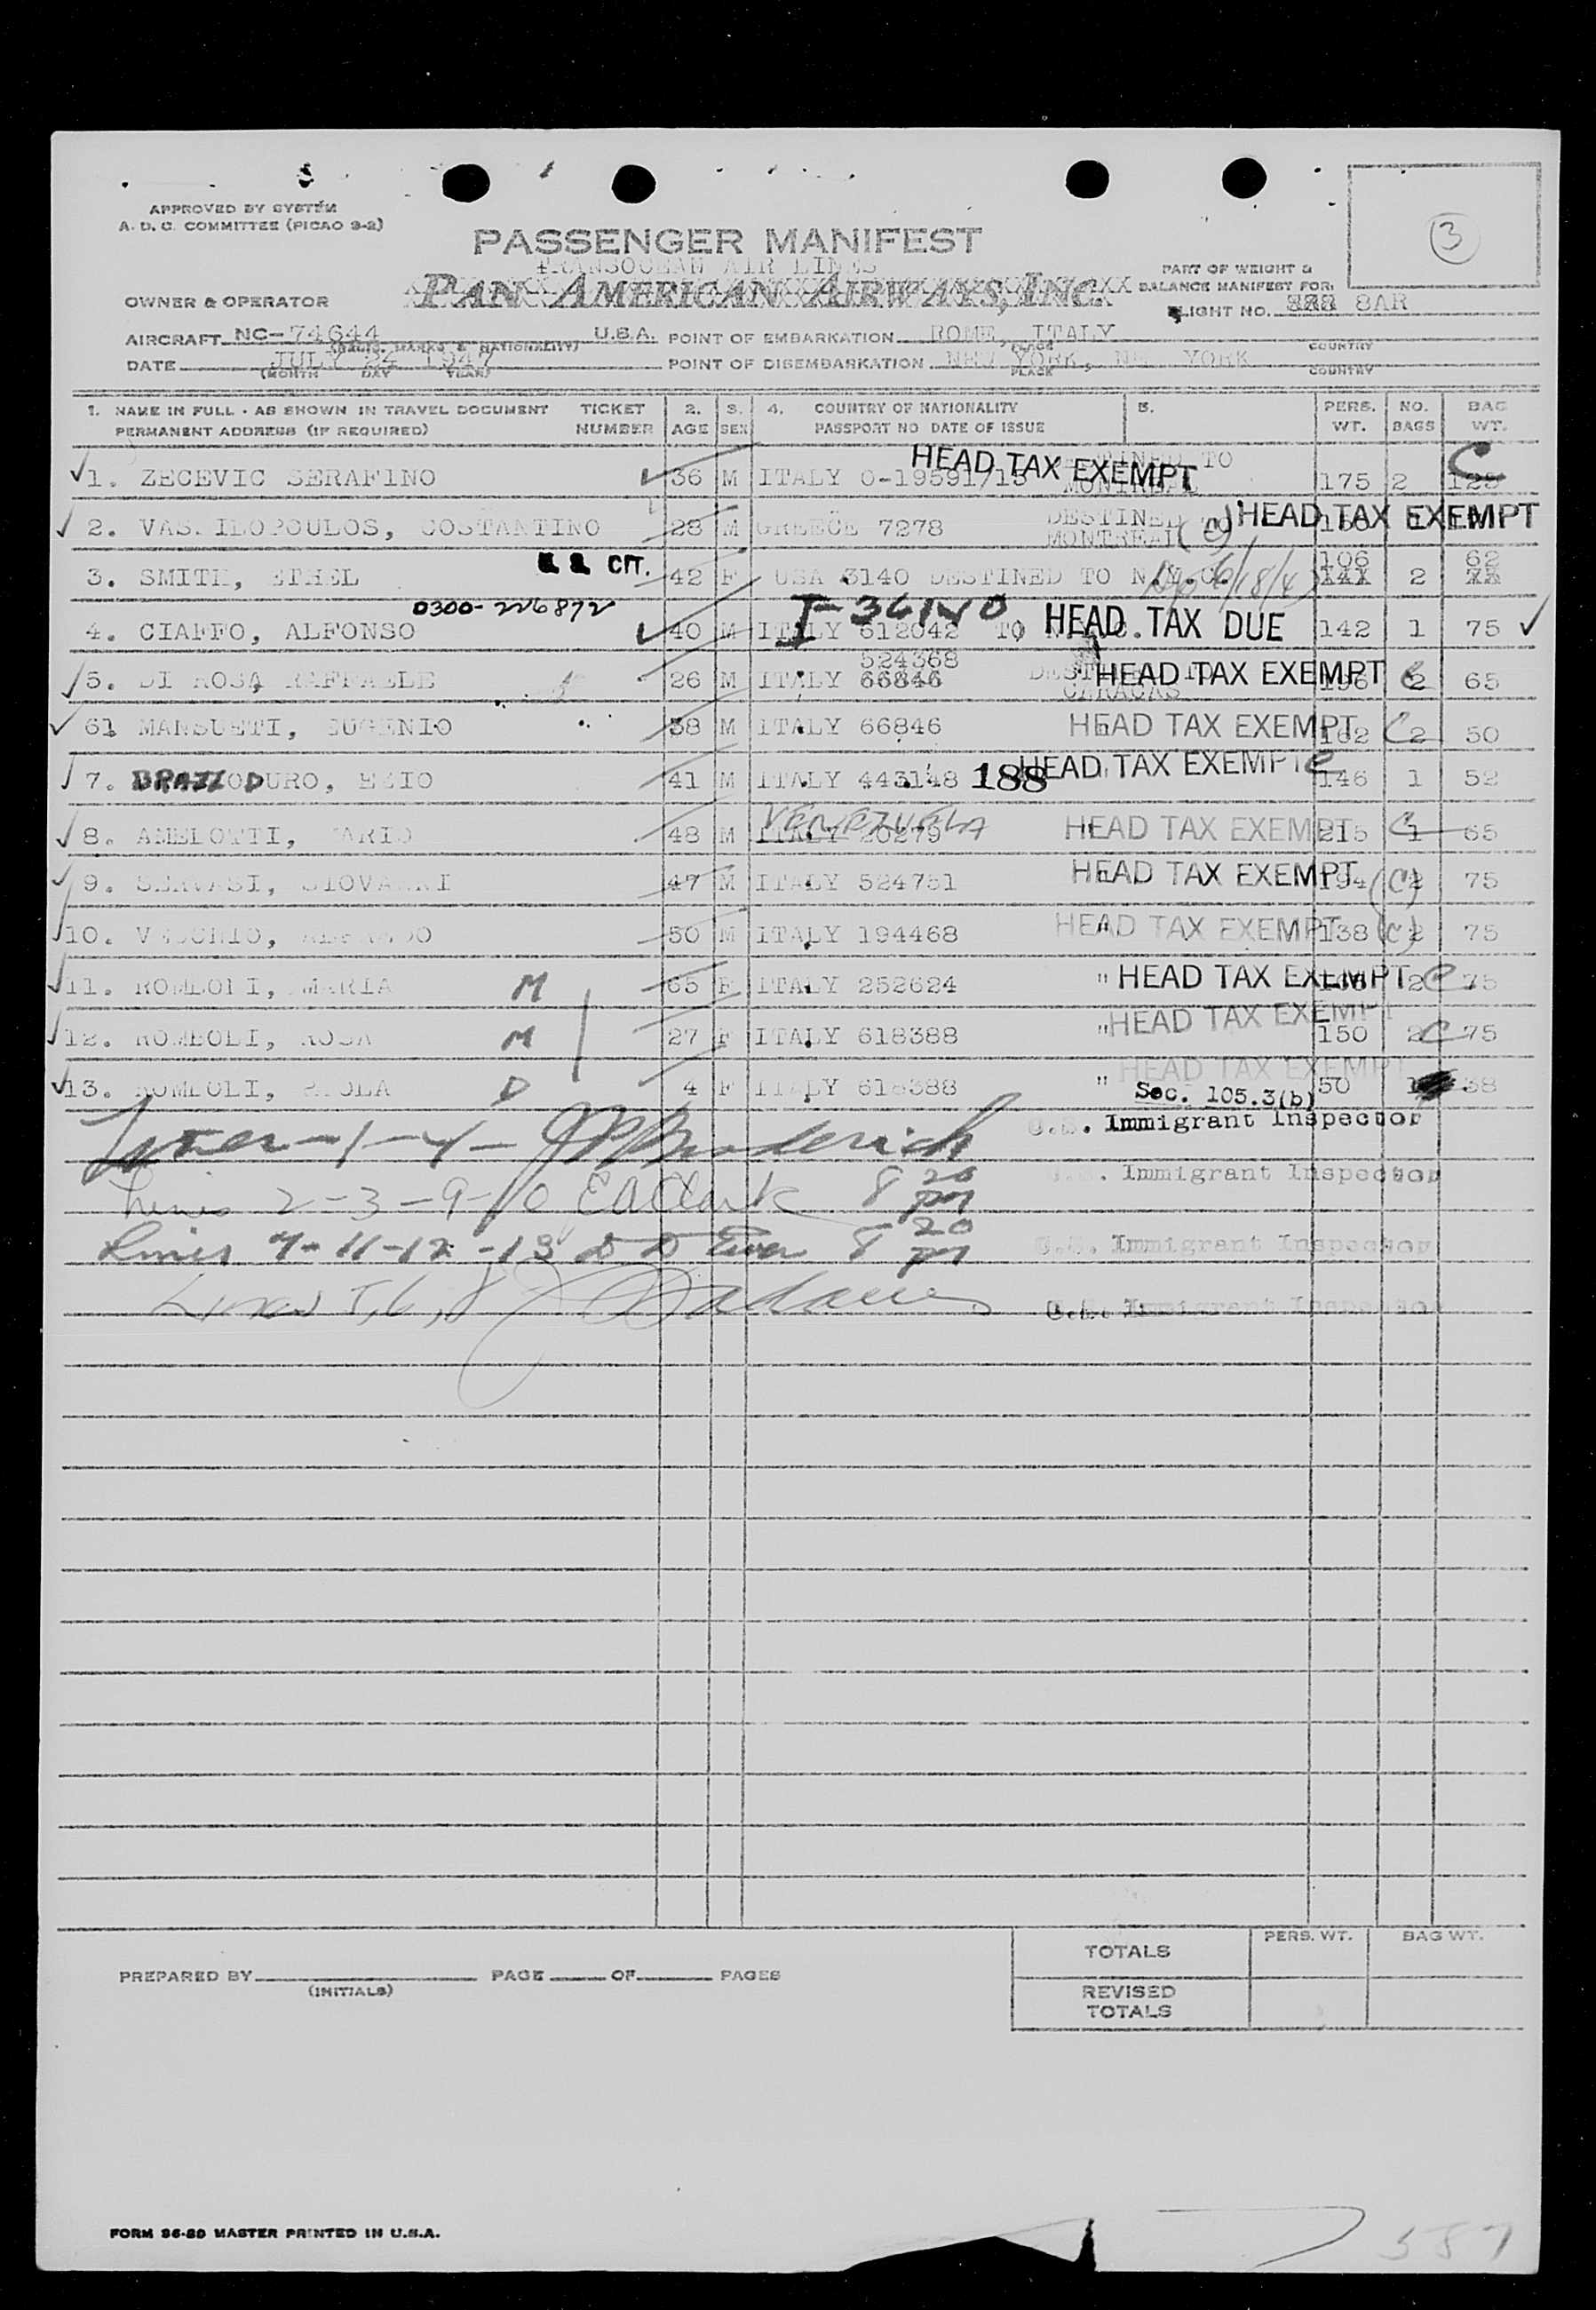 APPROVED BY SYSTEM
A. D. C. COMMITTEE (PICAO 9-2)
3
PASSENGER MANIFEST
TRANSOCEAN AIR LINES
PAN AMERICAN AIRWAYS, INC.
PART OF WEIGHT &
BALANCE MANIFEST FOR:
OWNER & OPERATOR
FLIGHT NO. 8AR
AIRCRAFT NC-74644 U.S.A. POINT OF EMBARKATION ROME, ITALY
(REGIS. MARKS & NATIONALITY) PLACE COUNTRY
DATE JULY 24 1947 POINT OF DISEMBARKATION NEW YORK, NEW YORK
(MONTH DAY YEAR) PLACE COUNTRY
1. NAME IN FULL - AS SHOWN IN TRAVEL DOCUMENT TICKET 2. 3. 4. COUNTRY OF NATIONALITY 5. PERS. NO. BAG
PERMANENT ADDRESS (IF REQUIRED) NUMBER AGE SEX PASSPORT NO DATE OF ISSUE WT. BAGS WT.
1. ZECEVIC SERAFINO 36 M ITALY 0-19591/15 DESTINED TO MONTREAL HEAD TAX EXEMPT 175 2 C
2. VASSILOPOULOS, COSTANTINO 28 M GREECE 7278 DESTINED TO MONTREAL (C) HEAD TAX EXEMPT
3. SMITH, ETHEL U.S. CIT. 42 F USA 3140 DESTINED TO N.Y.C. 106 2 62
0300-226872
4. CIAFFO, ALFONSO 40 M ITALY 612042 TO HEAD TAX DUE 142 1 75
524368
5. DI ROSA RAFFAELE 26 M ITALY 66846 DESTINED TO CARACAS HEAD TAX EXEMPT 196 2 65
6. MANSUETI, EUGENIO 38 M ITALY 66846 HEAD TAX EXEMPT 162 C 2 50
7. BRAZZODURO, EZIO 41 M ITALY 443148 188 HEAD TAX EXEMPT C 146 1 52
8. AMELOTTI, MARIO 48 M VENEZUELA ITALY 20279 " HEAD TAX EXEMPT 215 C 1 65
9. SERVASI, GIOVANNI 47 M ITALY 524751 " HEAD TAX EXEMPT 194 (C) 2 75
10. VECCHIO, ALFREDO 50 M ITALY 194468 " HEAD TAX EXEMPT 138 (C) 2 75
11. ROMBOLI, MARIA M 65 F ITALY 252624 " HEAD TAX EXEMPT 2 C 75
12. ROMBOLI, ROSA M 27 F ITALY 618388 " HEAD TAX EXEMPT 150 2 C 75
13. ROMBOLI, PAOLA D 4 F ITALY 618388 " HEAD TAX EXEMPT 50 1 38
Sec. 105.3(b)
Lines - 1 - 4 - U.S. Immigrant Inspector
Lines 2-3-9-10 E A Clark 8 20 pm U.S. Immigrant Inspector
Lines 7-11-12-13 8 20 pm U.S. Immigrant Inspector
Lines 5, 6, 8 U.S. Immigrant Inspector
PREPARED BY (INITIALS) PAGE OF PAGES
PERS. WT. BAG WT.
TOTALS
REVISED
TOTALS
FORM 96-89 MASTER PRINTED IN U.S.A.
557